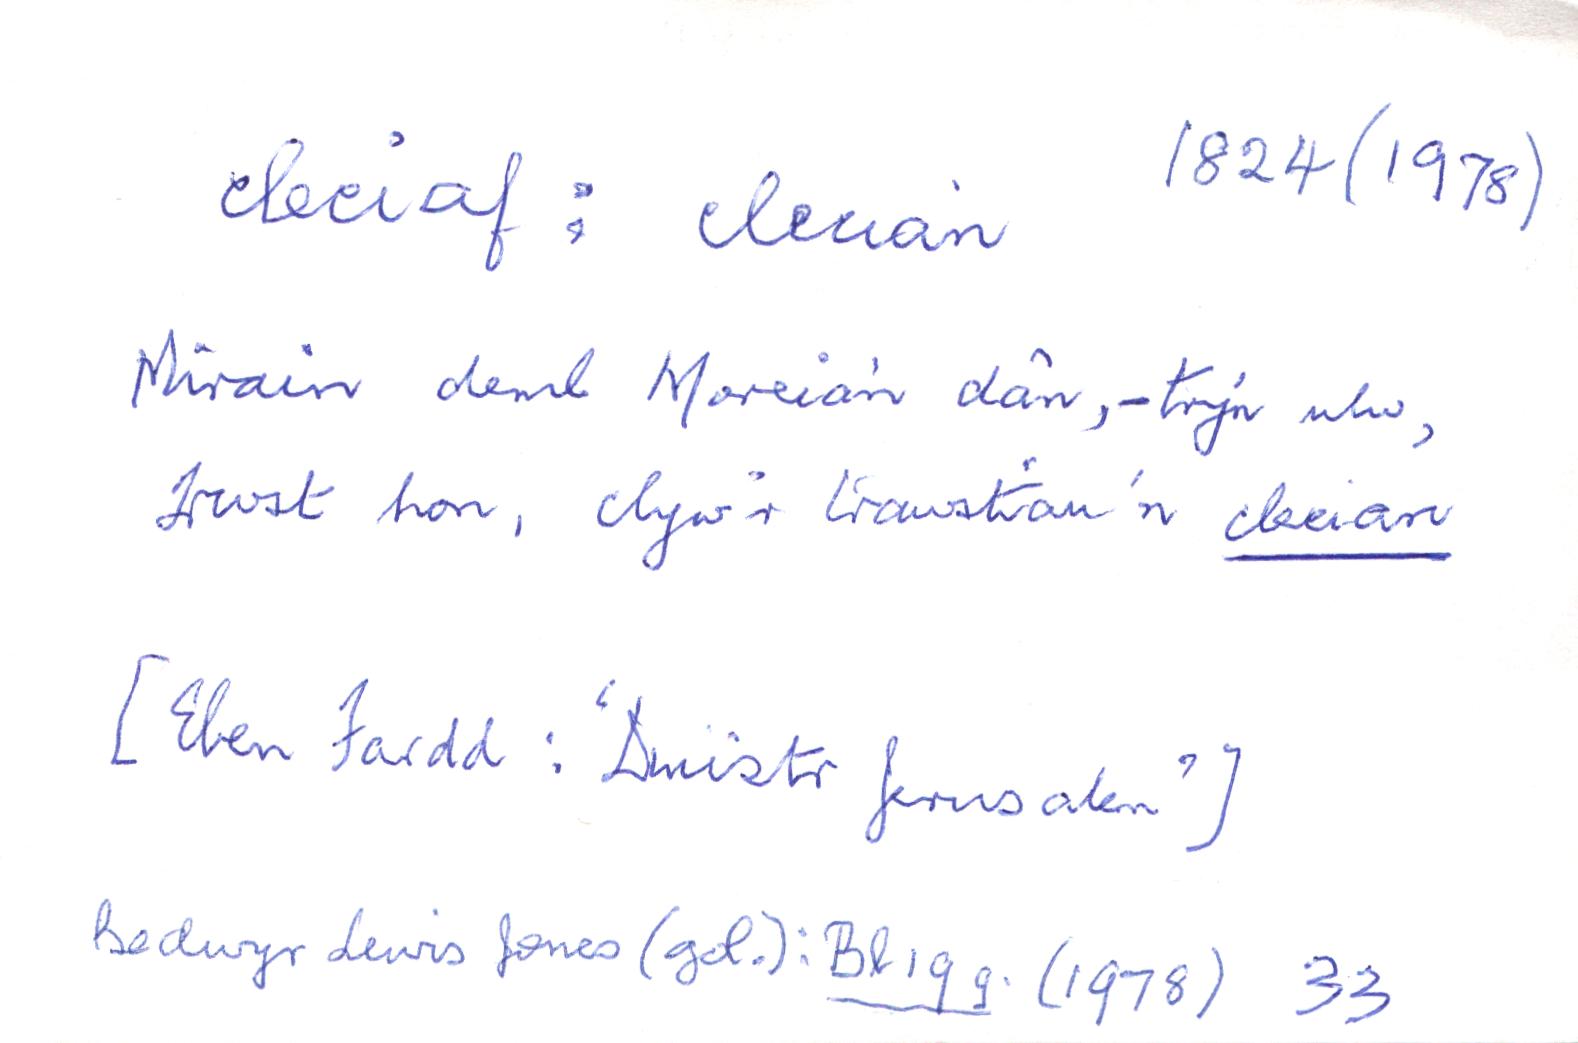 cleciaf : clecian 1824 (1978)
Mirain deml Moreia'n dân, - trŷn uwch,
Trwst hon, clyw'r trawstiau'n clecian
[Eben Fardd : "Dinistr Jerusalem"]
Bedwyr Lewis Jones (gol.): Bl 19 g. (1978) 33